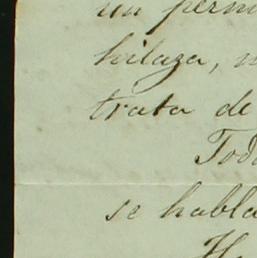 un perm
hilaza, n
trata de
Tod
se habla
H